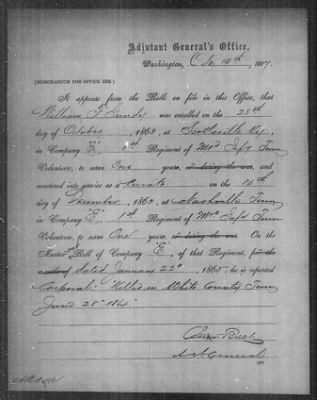 Adjutant General's Office,
Washington, 10th, 1867.
[MEMORANDUM FOR OFFICE USE.]
It appears from the Roll on file in this Office, that
William F. was enrolled on the 28th
day of October, 1863, at Scottsville Ky.
in Company "E", 1st Regiment of Mtd Inft Tenn
Volunteers, to serve One years, or during the war, and
mustered into service as a Private on the 10th
day of December, 1863, at Nashville Tenn
in Company "E" 1st Regiment of Mtd Inft Tenn
Volunteers, to serve One years, or during the war. On the
Muster Roll of Company "E", of that Regiment,
dated January 22d, 1865, he is reported
Corporal: "Killed in White County Tenn
June 28" 1864"
A A General